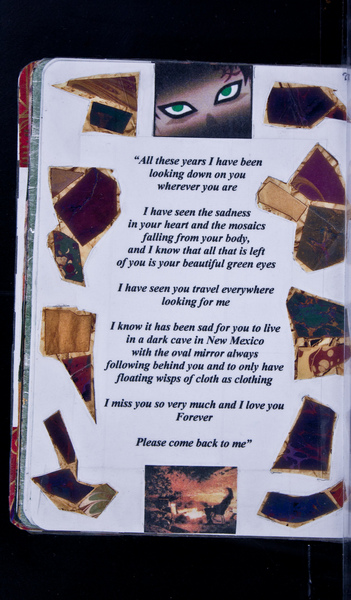 “All these years I have been
looking down on you
wherever you are
I have seen the sadness
in your heart and the mosaics
falling from your body,
and I know that all that is left
of you is your beautiful green eyes
I have seen you travel everywhere
looking for me
I know it has been sad for you to live
in a dark cave in New Mexico
with the oval mirror always
following behind you and to only have
floating wisps of cloth as clothing
I miss you so very much and I love you
Forever
Please come back to me”